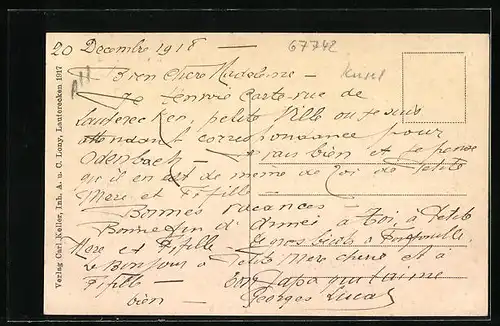 20 Decembre 1918 —
67742
Kusel
Bien Chere Madeleine —
Je t'envoie Carte-vue de
Lauterecken, petite Ville ou je suis
attendant correspondance pour
Odenbach — vais bien et je pense
qu'il en est de meme de toi de Petite
Mere et Fifille —
Bonnes vacances —
Bonne fin d'Année à toi, à Petite
Mere et Fifille —
Le Bonjour à Petite Mere cherie et à
Fifille — ton Papa qui t'aime
bien — Georges Lucas
Verlag Carl Keller, Inh. A. u. C. Lony, Lauterecken 1917